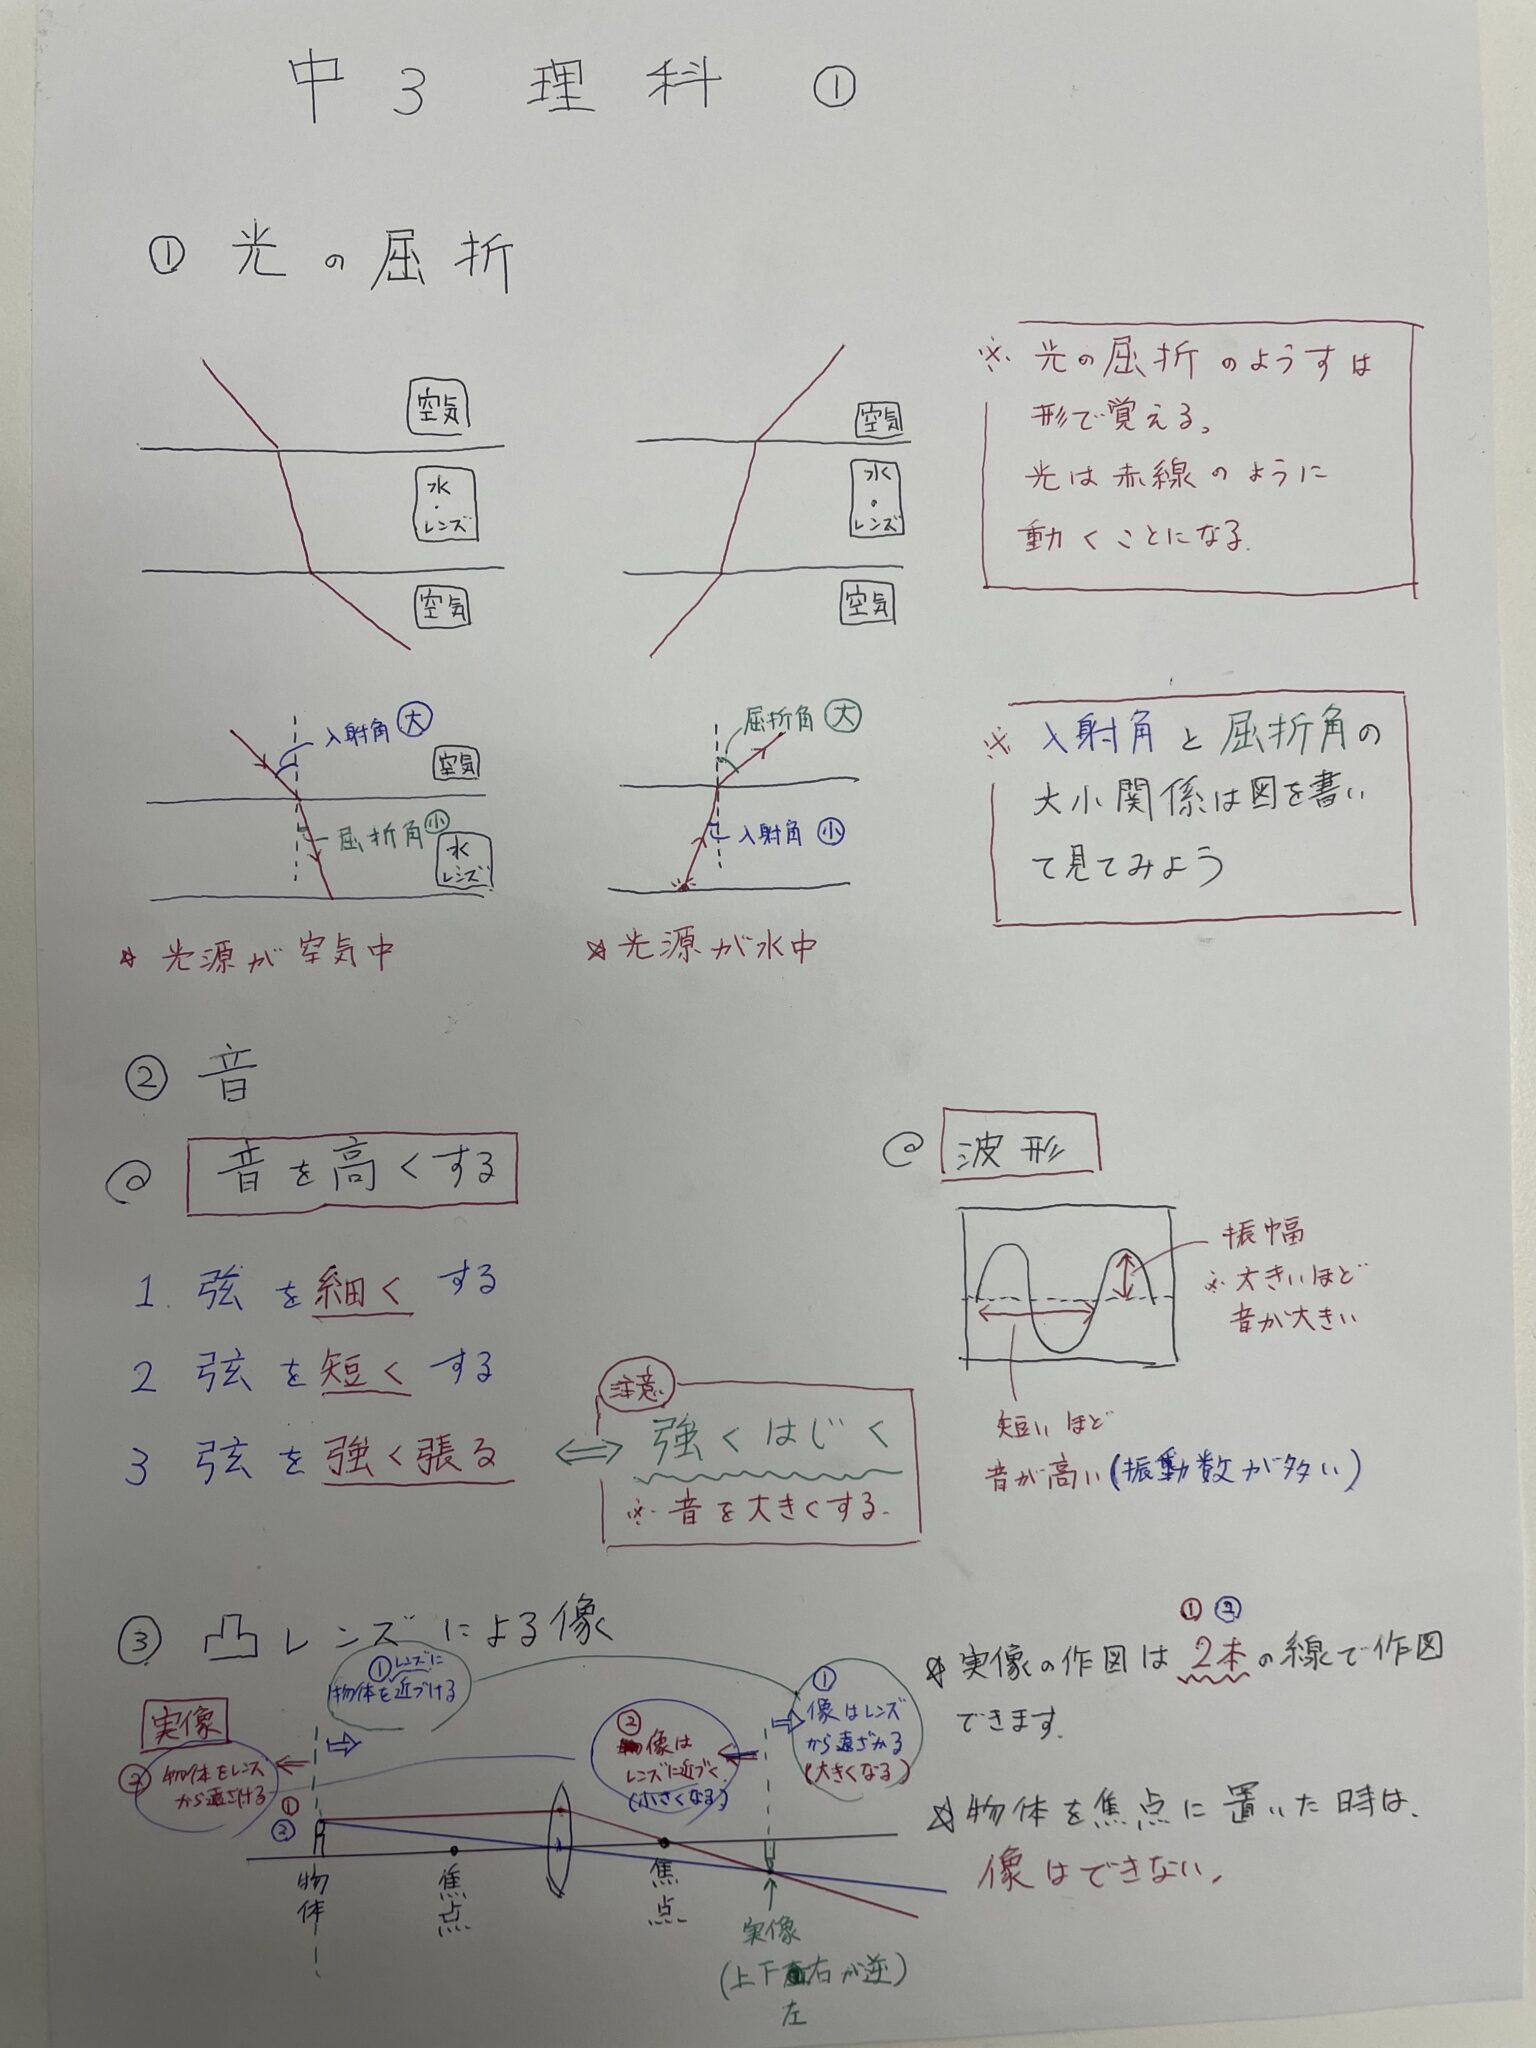 中3 理科 ①
① 光の屈折
空気
水・レンズ
空気
空気
水・レンズ
空気
※光の屈折のようすは
形で覚える。
光は赤線のように
動くことになる.
入射角 大
空気
屈折角 小
水
レンズ
☆光源が空気中
屈折角 大
入射角 小
☆光源が水中
※入射角と屈折角の
大小関係は図を書い
て見てみよう
② 音
@ 音を高くする
1. 弦を細くする
2 弦を短くする
3 弦を強く張る
注意
強くはじく
※音を大きくする.
@ 波形
振幅
※大きいほど
音が大きい
短いほど
音が高い(振動数が多い)
③ 凸レンズによる像
実像
①レンズに
物体を近づける
② 物体をレンズ
から遠ざける
①
②
物体
焦点
②
像は
レンズに近づく
(小さくなる)
焦点
①
像はレンズ
から遠ざかる
(大きくなる)
実像
(上下左右が逆)
① ②
☆実像の作図は2本の線で作図
できます.
☆物体を焦点に置いた時は、
像はできない。